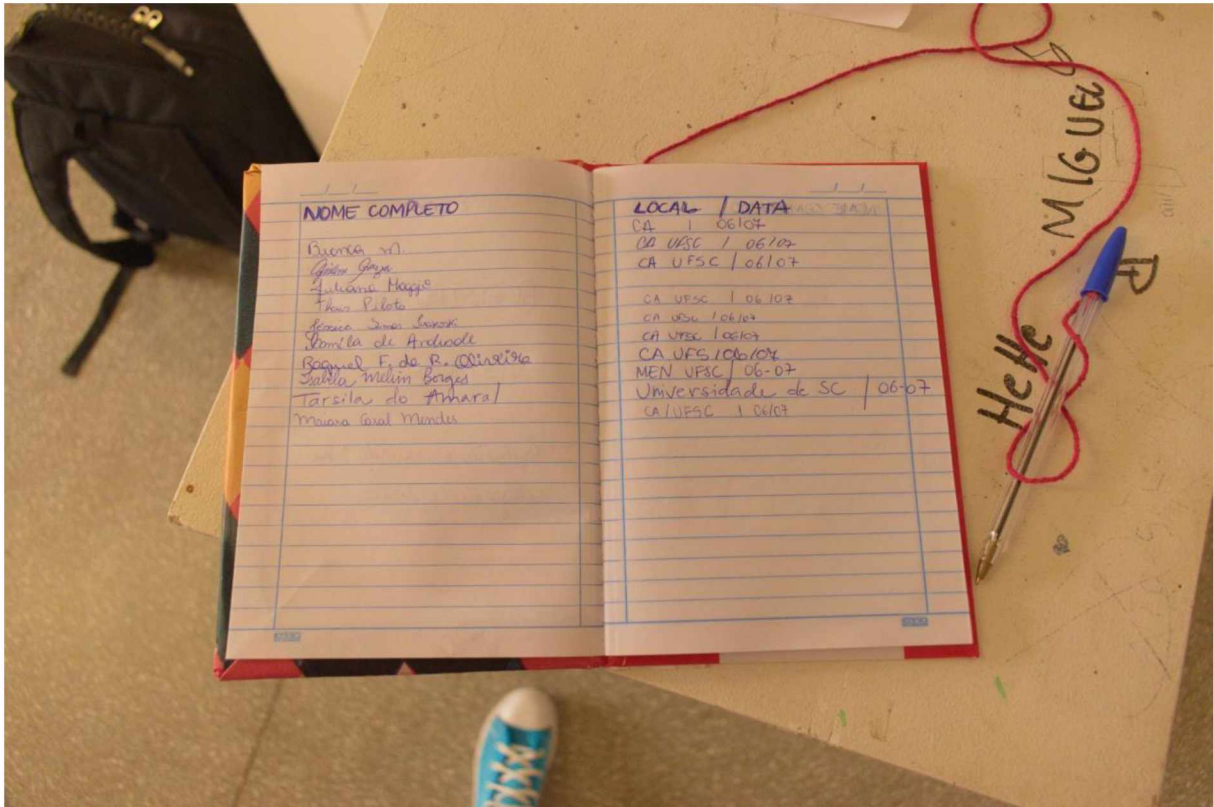 NOME COMPLETO
Bianca
Juliana
Thais Piloto
Jéssica
Kamila de Andrade
Raquel F. de R. Oliveira
Isabela Melim Borges
Tarsila do Amaral
Maiara Mendes
LOCAL / DATA
CA | 06/07
CA UFSC / 06/07
CA UFSC / 06/07
CA UFSC | 06/07
CA UFSC / 06/07
CA UFSC / 06/07
CA UFS / 06/07
MEN UFSC / 06-07
Universidade de SC / 06-07
CA/UFSC | 06/07
MIGUEL
Helle